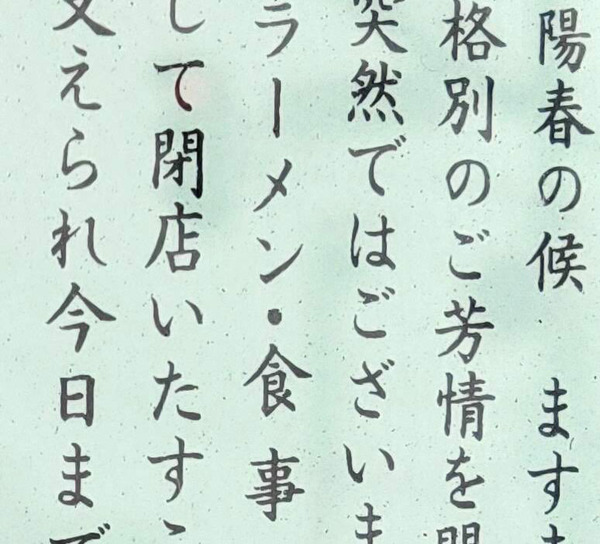 陽春の候　ます
格別のご芳情を
突然ではございま
ラーメン・食事
して閉店いたす
支えられ今日まで